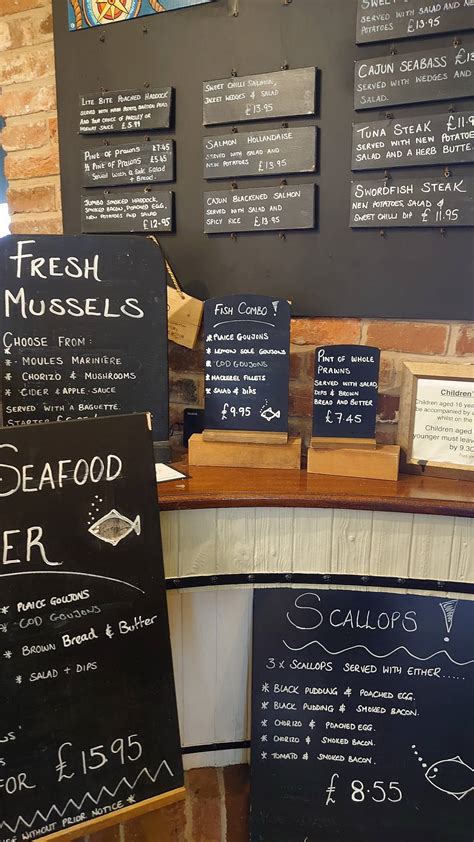 LITE BITE POACHED HADDOCK
SAUCE £5.99
PINT OF PRAWNS £7.45
½ PINT OF PRAWNS £5.45
SERVED WITH A SIDE SALAD
+ BREAD.
JUMBO SMOKED HADDOCK
SMOKED BACON, POACHED EGG,
NEW POTATOES AND SALAD £12.95
SWEET CHILLI SALMON,
JACKET WEDGES & SALAD
£13.95
SALMON HOLLANDAISE
SERVED WITH SALAD AND
NEW POTATOES £13.95
CAJUN BLACKENED SALMON
SERVED WITH SALAD AND
SPICY RICE £13.95
SWEET
SERVED WITH SALAD AND NEW
POTATOES £13.95
CAJUN SEABASS £13.
SERVED WITH WEDGES AND
SALAD.
TUNA STEAK £11.9
SERVED WITH NEW POTATOES,
SALAD AND A HERB BUTTER.
SWORDFISH STEAK
NEW POTATOES, SALAD &
SWEET CHILLI DIP £11.95
FRESH
MUSSELS
CHOOSE FROM:
* MOULES MARINIÈRE
* CHORIZO & MUSHROOMS
* CIDER & APPLE SAUCE
SERVED WITH A BAGUETTE.
STARTER
FISH COMBO!
* PLAICE GOUJONS
* LEMON SOLE GOUJONS
* COD GOUJONS
* MACKEREL FILLETS
* SALAD & DIPS
£9.95
PINT OF WHOLE
PRAWNS
SERVED WITH SALAD,
DIPS & BROWN
BREAD AND BUTTER
£7.45
Children'
Children aged 16 ye
be accompanied by a
whilst on the
Children aged
younger must leave
by 9.30
SEAFOOD
ER
* PLAICE GOUJONS
* COD GOUJONS
* BROWN BREAD & BUTTER
* SALAD + DIPS
FOR £15.95
WITHOUT PRIOR NOTICE *
SCALLOPS!
3 x SCALLOPS SERVED WITH EITHER.....
* BLACK PUDDING & POACHED EGG.
* BLACK PUDDING & SMOKED BACON.
* CHORIZO & POACHED EGG.
* CHORIZO & SMOKED BACON.
* TOMATO & SMOKED BACON.
£8.55